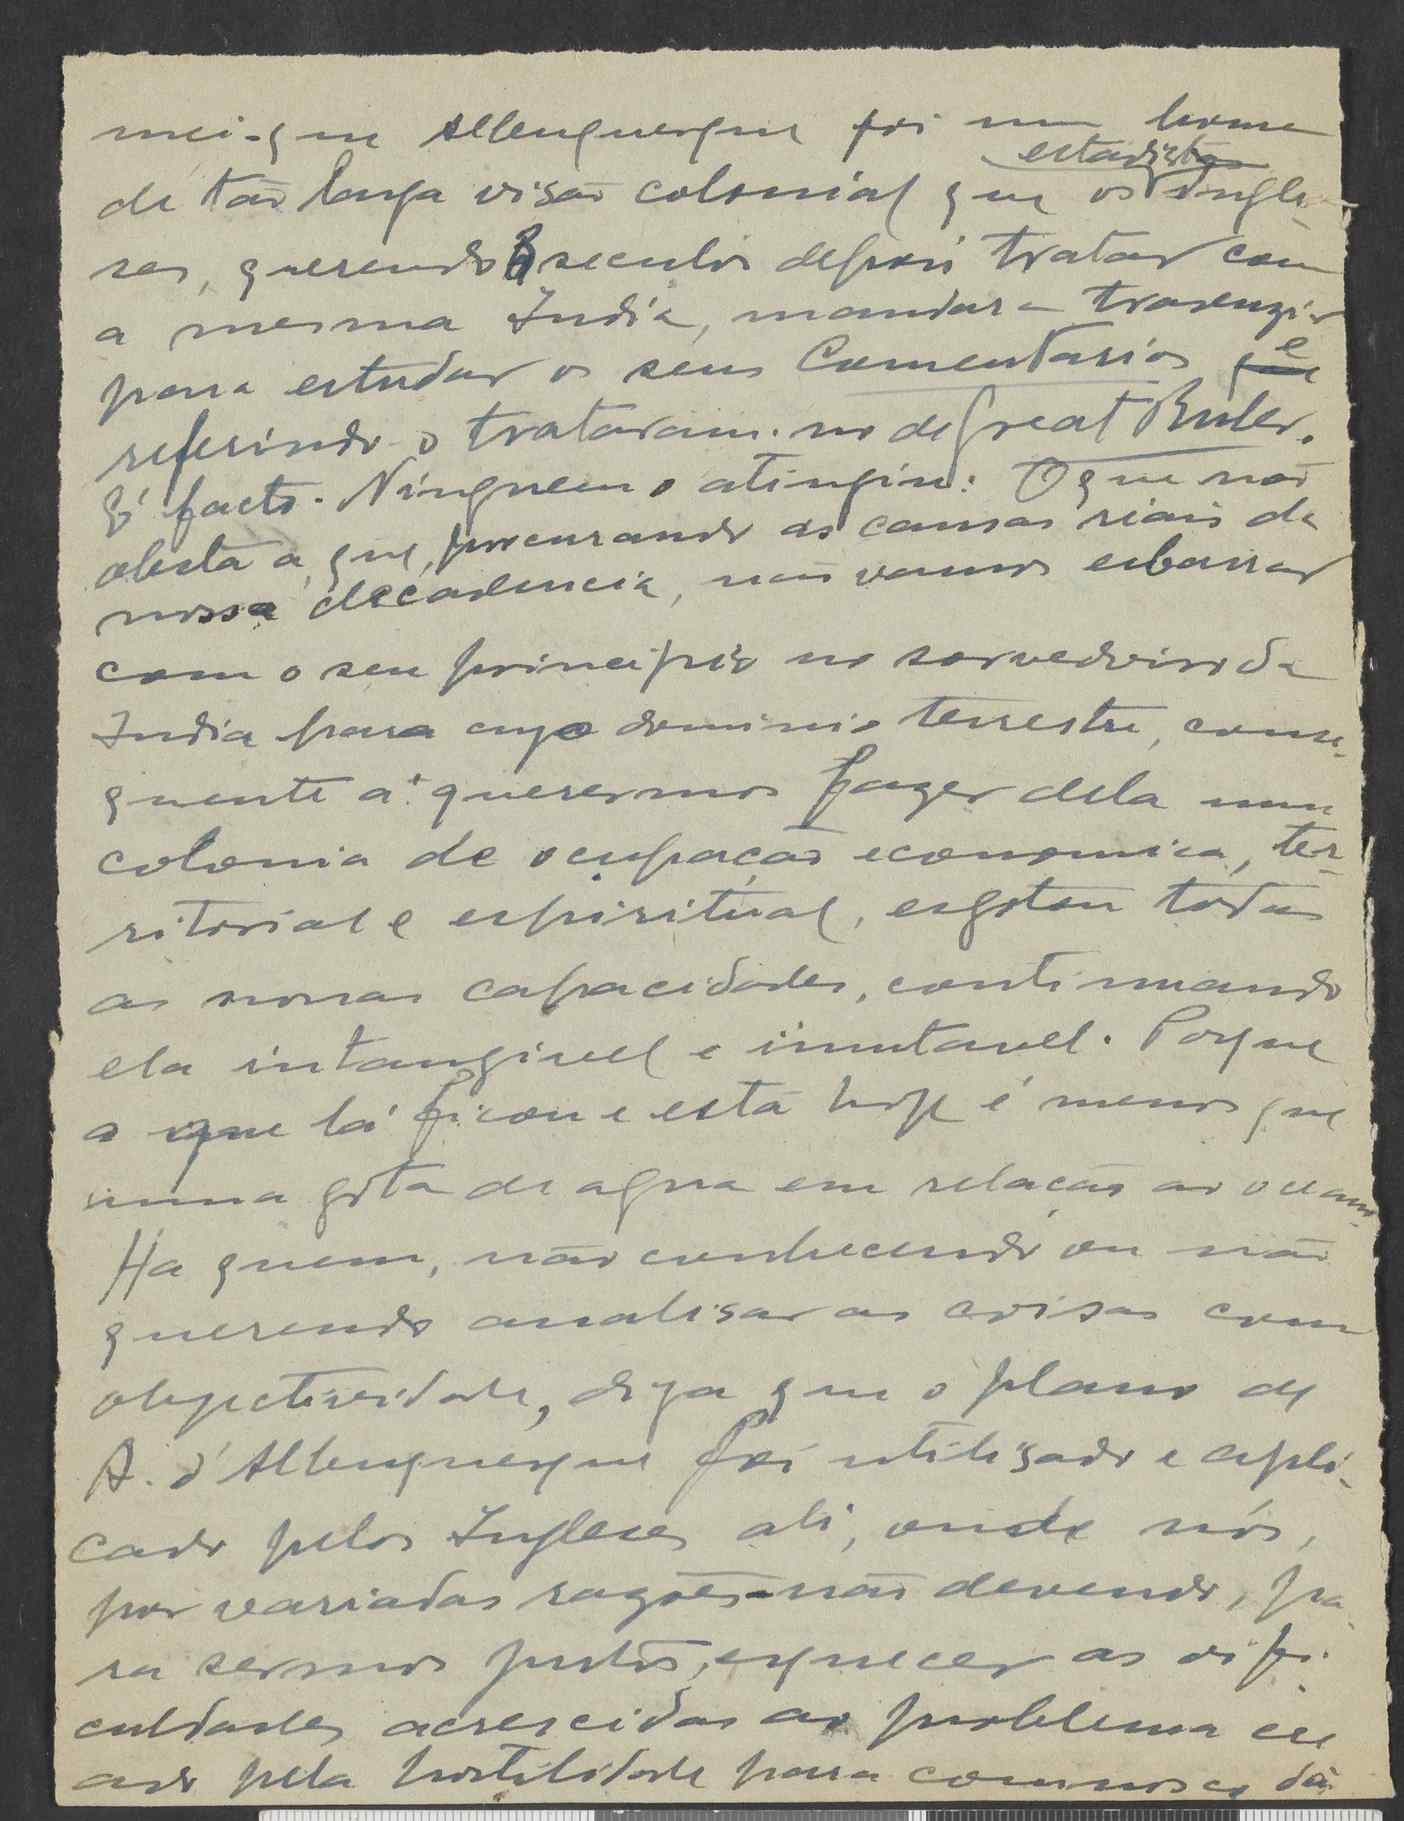 mei-que Albuquerque foi um home
estadistas
de tão larga visão colonial que os ingle-
ses, querendo 3 seculos depois tratar com
a mesma India, mandara traduzir
para estudar os seus Comentarios e
referindo-o trataram-no de Great Ruler.
É facto. Ninguem o atingiu. O que não
obsta a que, procurando as causas riais da
nossa decadencia, nós vamos esbarrar
com o seu principio no sorvedoiro da
India para cujo dominio terrestre, conse-
quente a querermos fazer dela uma
colonia de ocupação economica, ter-
ritorial e espiritual, esgotou todas
as nossas capacidades, continuando
ela intangivel e imutavel. Porque
o que lá ficou e está hoje é menos que
numa gôta de agua em relação ao oceano.
Ha quem, não conhecendo ou não
querendo analisar as coisas com
objectividade, diga que o plano de
A. d'Albuquerque foi utilisado e apli-
cado pelos Ingleses ali, onde nós,
por variadas razões - não devendo, pa-
ra sermos justos, esquecer as difi-
culdades acrescidas ao problema cre
ado pela hostilidade para comnosco da